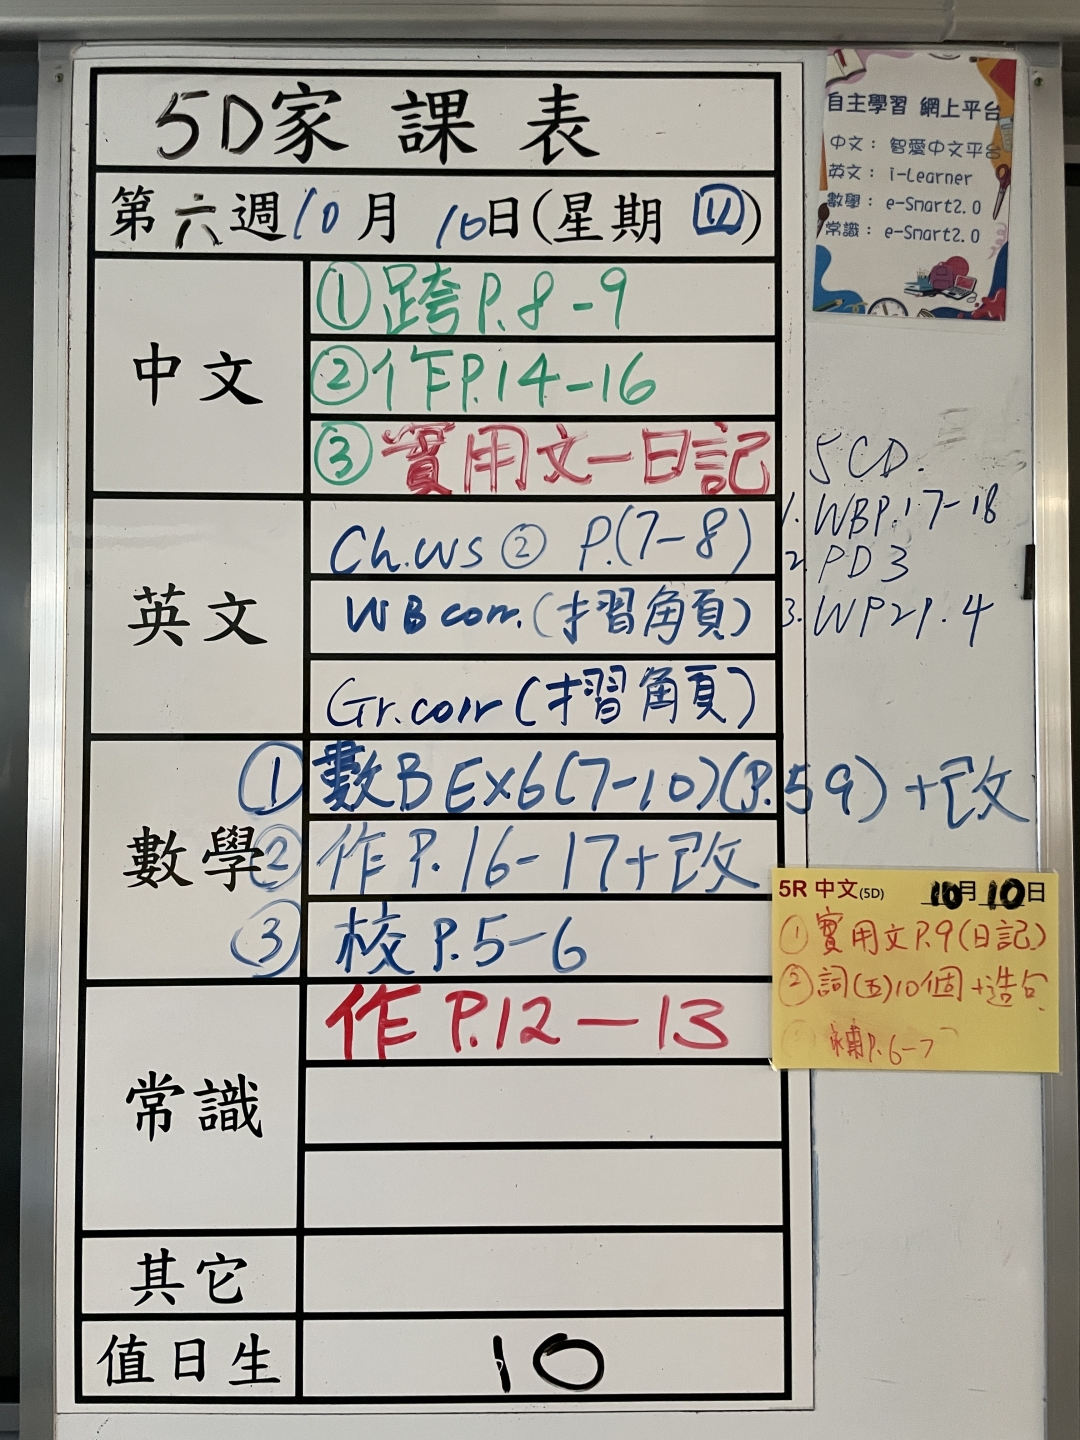 5D家課表
第六週10月10日(星期四)
中文
①跨P.8-9
②作P.14-16
③實用文-日記
英文
Ch.WS ② P.(7-8)
WB corr.(才習角頁)
Gr.corr(才習角頁)
數學
①數B Ex6(7-10)(P.59)+改
②作P.16-17+改
③校P.5-6
常識
作P.12-13
其它
值日生
10
自主學習 網上平台
中文：智愛中文平台
英文：i-Learner
數學：e-Smart2.0
常識：e-Smart2.0
5CD.
1.WBP.17-18
2.PD3
3.WP2P.4
5R 中文(5D) 10月10日
①實用文P.9(日記)
②詞(五)10個+造句
P.6-7